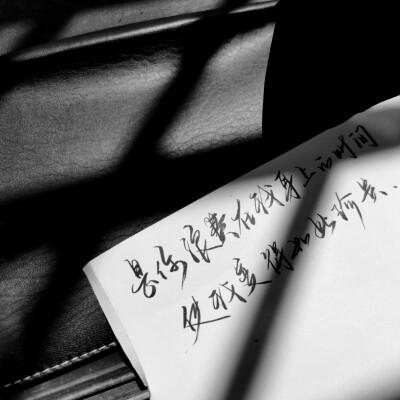 是你浪费在我身上的时间
使我变得如此珍贵..